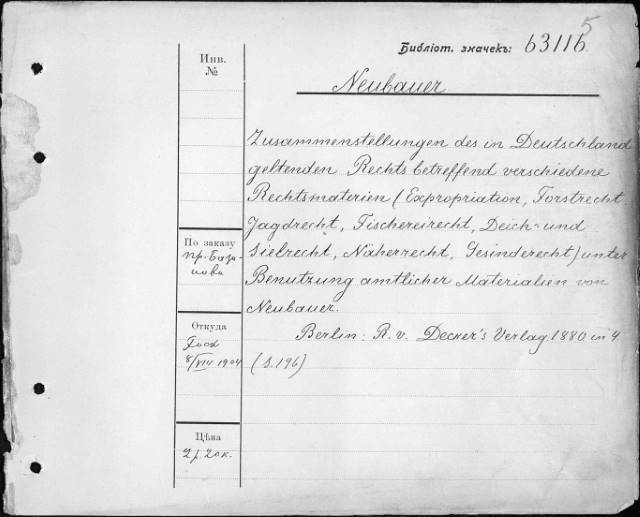 5
Библіот. значекъ: 63116
Инв.
№
Neubauer
Zusammenstellungen des in Deutschland
geltenden Rechts betreffend verschiedene
Rechtsmaterien (Expropriation, Forstrecht
Jagdrecht, Fischereirecht, Deich- und
Sielrecht, Näherrecht, Gesinderecht) unter
Benutzung amtlicher Materialien von
Neubauer.
Berlin: R. v. Decker's Verlag 1880 in 4
(S. 196)
По заказу
пр.
Откуда
8/VIII 1904
Цѣна
2 р. 20 к.